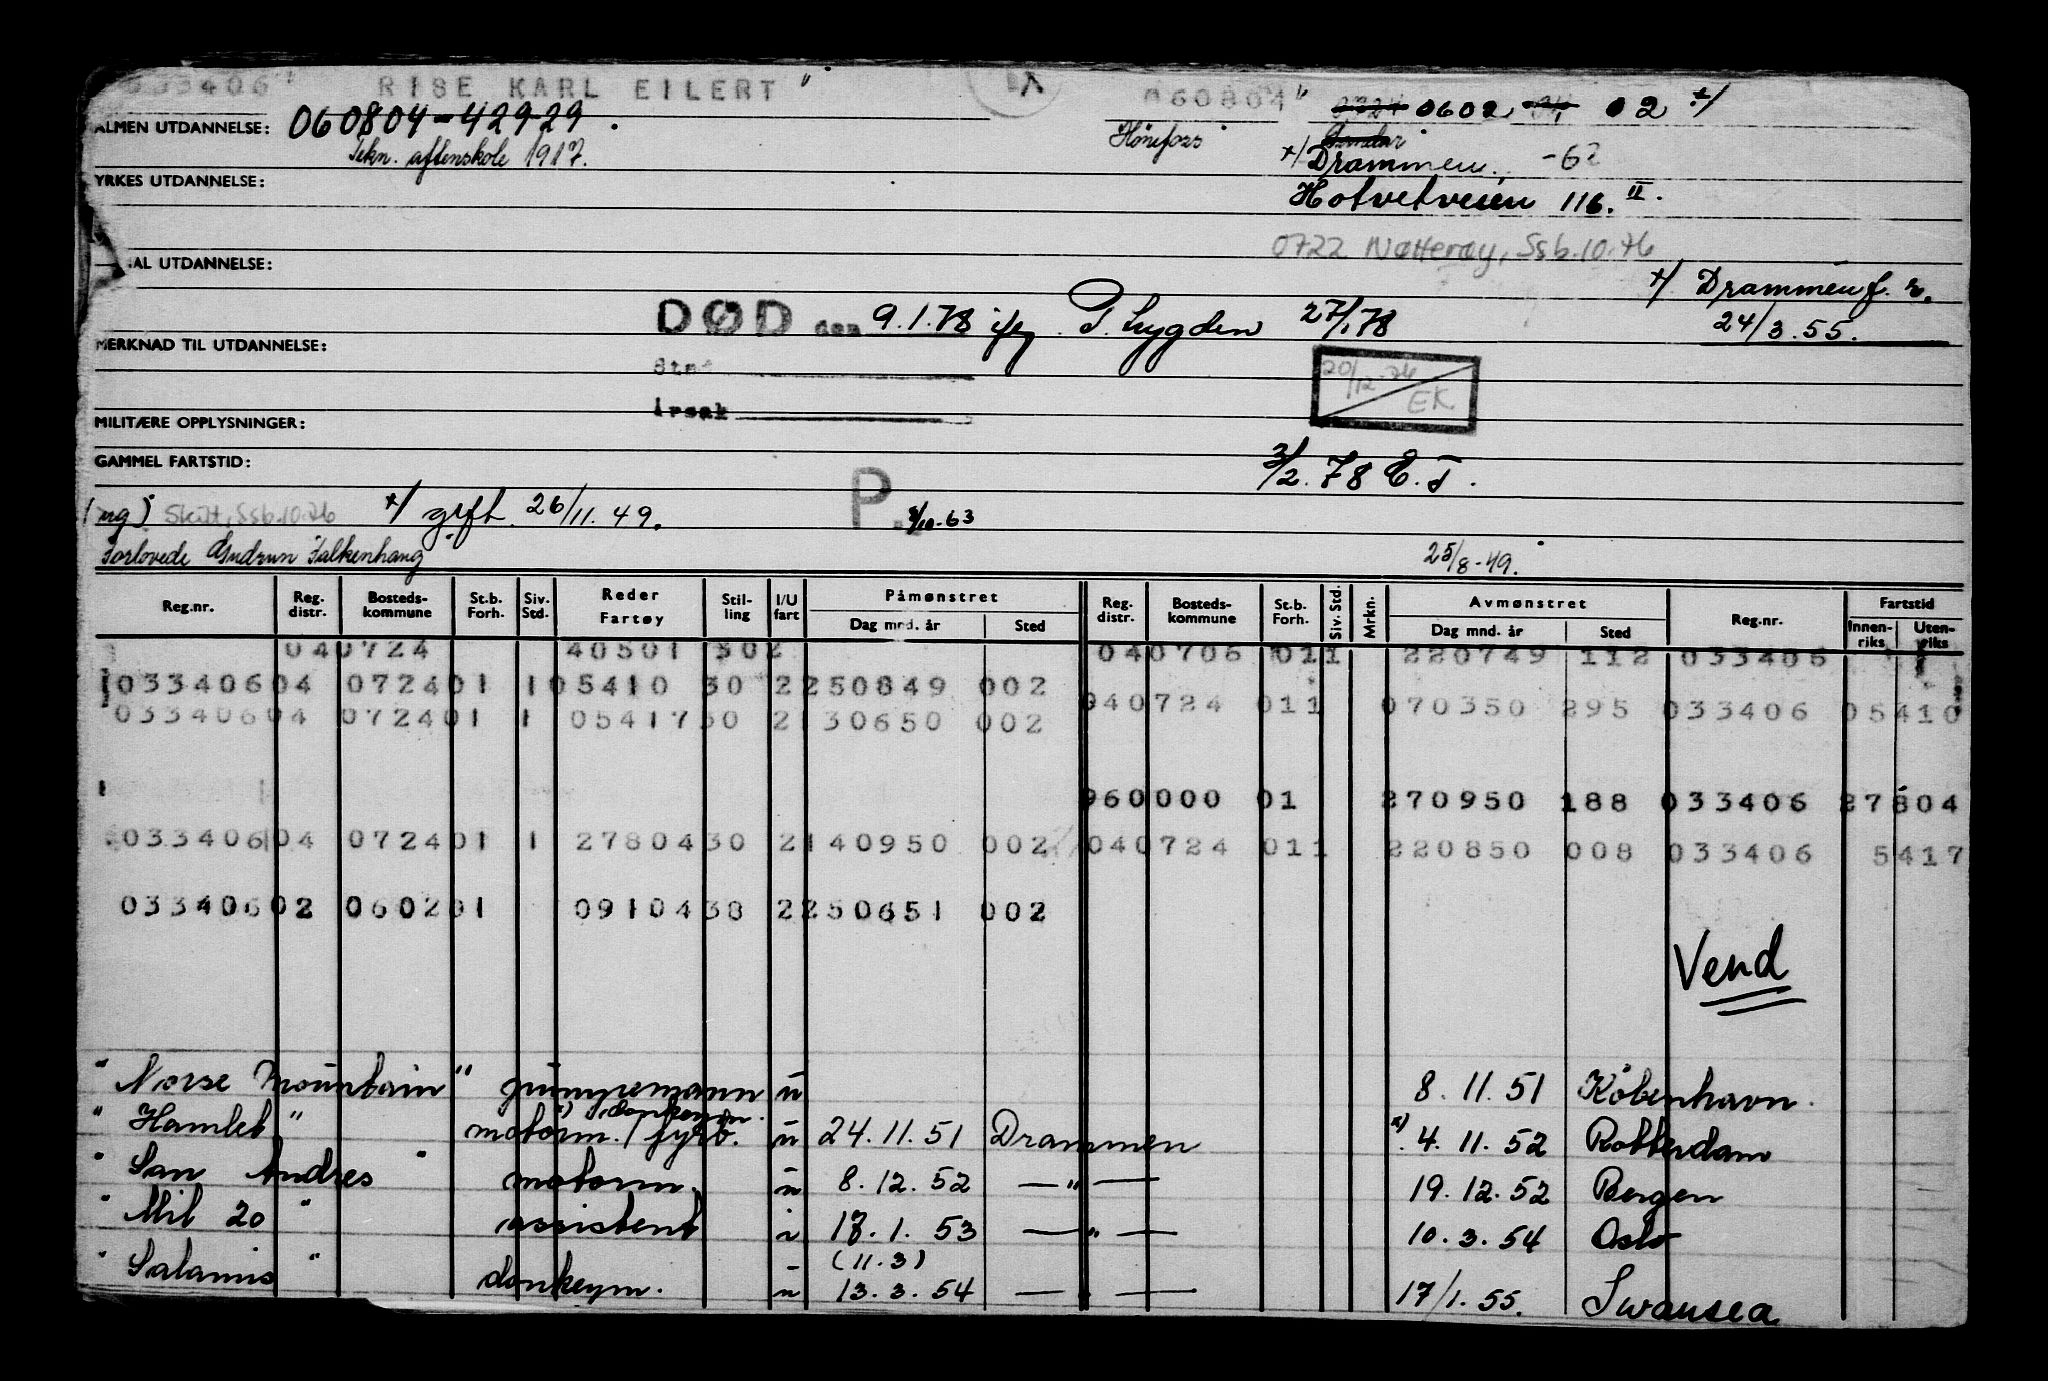 033406" RISE KARL EILERT" 060804" 0602 02 x/
ALMEN UTDANNELSE: 060804-42929. Hönefoss
Tekn. aftenskole 1917. x/ Drammen, -62
YRKES UTDANNELSE:
Hotvetveien 116. II.
0722 Nøtterøy, Ssb.10.76
AL UTDANNELSE:
x/ Drammen f. r.
DØD den 9.1.78 iflg. P. Lygden 27/1.78 24/3.55.
MERKNAD TIL UTDANNELSE:
Sted
20/12.76 EK.
Årsak
MILITÆRE OPPLYSNINGER:
GAMMEL FARTSTID: 3/2.78 E.T.
(ug) Skilt, Ssb.10.76 x/ gift 26/11.49. P. 3/10-63
Forlovede Gudrun Falkenhaug 25/8-49.
Reg.nr. Reg. distr. Bosteds-kommune St.b. Forh. Siv. Std. Reder Fartøy Stil-ling I/U fart Påmønstret Dag mnd. år Sted Reg. distr. Bosteds-kommune St.b. Forh. Siv. Std. Mrkn. Avmønstret Dag mnd. år Sted Reg.nr. Fartstid Innen-riks Uten-riks
040724 40501 302 040706 011 220749 112 033406
033406 04 0724 01 1 05410 30 2 250849 002
040724 011 070350 295 033406 05410
033406 04 0724 01 1 05417 30 2 130650 002
960000 01 270950 188 033406 27804
033406 04 0724 01 1 27804 30 2 140950 002 040724 011 220850 008 033406 5417
033406 02 0602 01 09104 38 2 250651 002
Vend
"Norse Mountain" pumpemann u 8.11.51 København.
"Hamlet" motorm./fyrb. x) donkeym. u 24.11.51 Drammen x) 4.11.52 Rotterdam
"San Andres" motorm. u 8.12.52 —"— 19.12.52 Bergen
"Mil 20" assistent i 17.1.53 —"— 10.3.54 Oslo
(11.3)
"Salamis" donkeym. u 13.3.54 —"— 17/1.55. Swansea